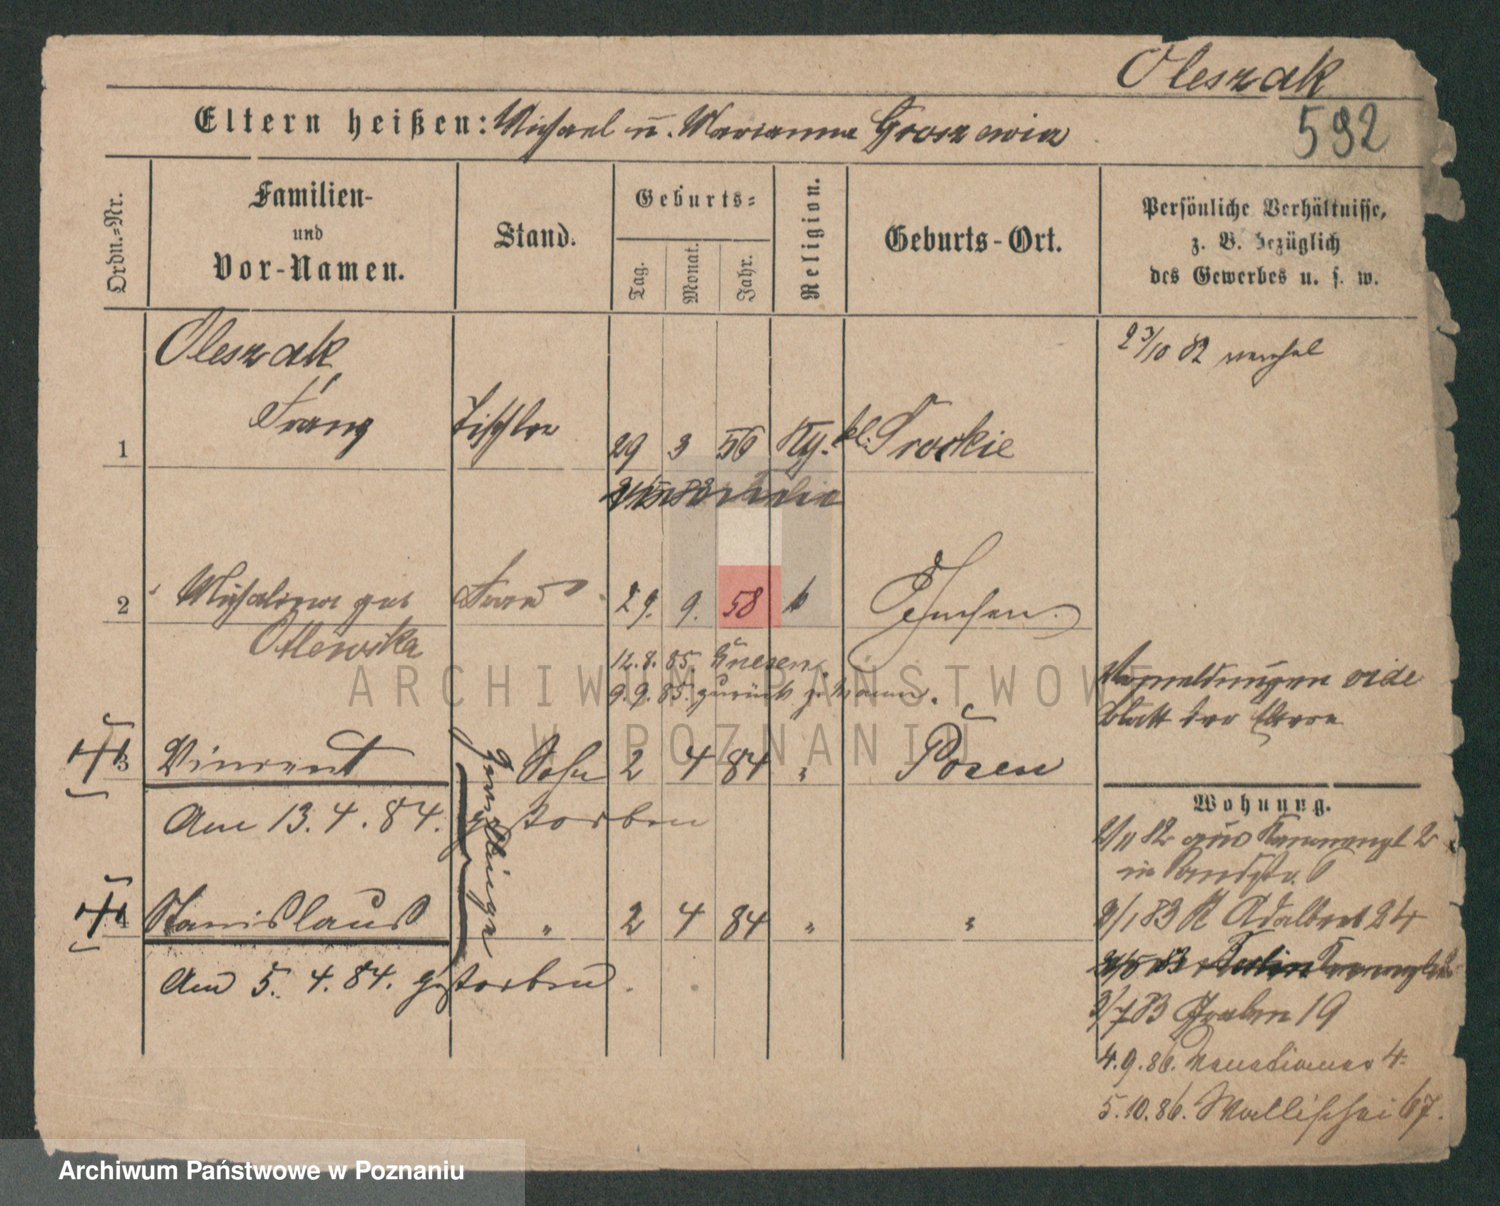 Oleszak
592
Eltern heißen: Michael u. Marianna
Ordn.-Nr.
Familien-
und
Vor-Namen.
Stand.
Geburts-
Tag.
Monat.
Jahr.
Religion.
Geburts-Ort.
Persönliche Verhältnisse,
z. B. bezüglich
des Gewerbes u. s. w.
Oleszak
23/10 82
1 Franz Tischler 29 3 56 kl.
2 Michalina geb Frau 29. 9. 58
12. 8. 85. Gnesen
9. 9. 85. zurück
Abmeldungen vide
Blatt der Eltern
3 Vincent Sohn 2 4 84 " Posen
Zwillinge
Am 13. 4. 84. gestorben
4 Stanislaus " 2 4 84 " "
Am 5. 4. 84. gestorben.
Wohnung.
2/11 82 2
in
2/1 83 St Adalbert 24
2/7 83 Graben 19
4. 9. 86. 4.
5. 10. 86. Wallischei 67.
ARCHIWUM PAŃSTWOWE
W POZNANIU
Archiwum Państwowe w Poznaniu